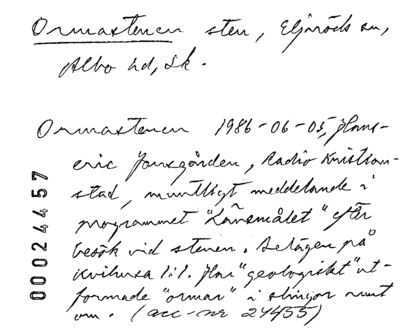 Ormastenen sten, Eljaröds sn,
Albo hd, Sk.
Ormastenen 1986-06-05, Hans-
eric Jonsgården, Radio Kristian-
stad, muntligt meddelande i
programmet "Länsmålet" efter
besök vid stenen. Belägen på
1:1. Har "geologiskt" ut-
formade "ormar" i slingor runt
om. (acc-nr 24455)
00024457